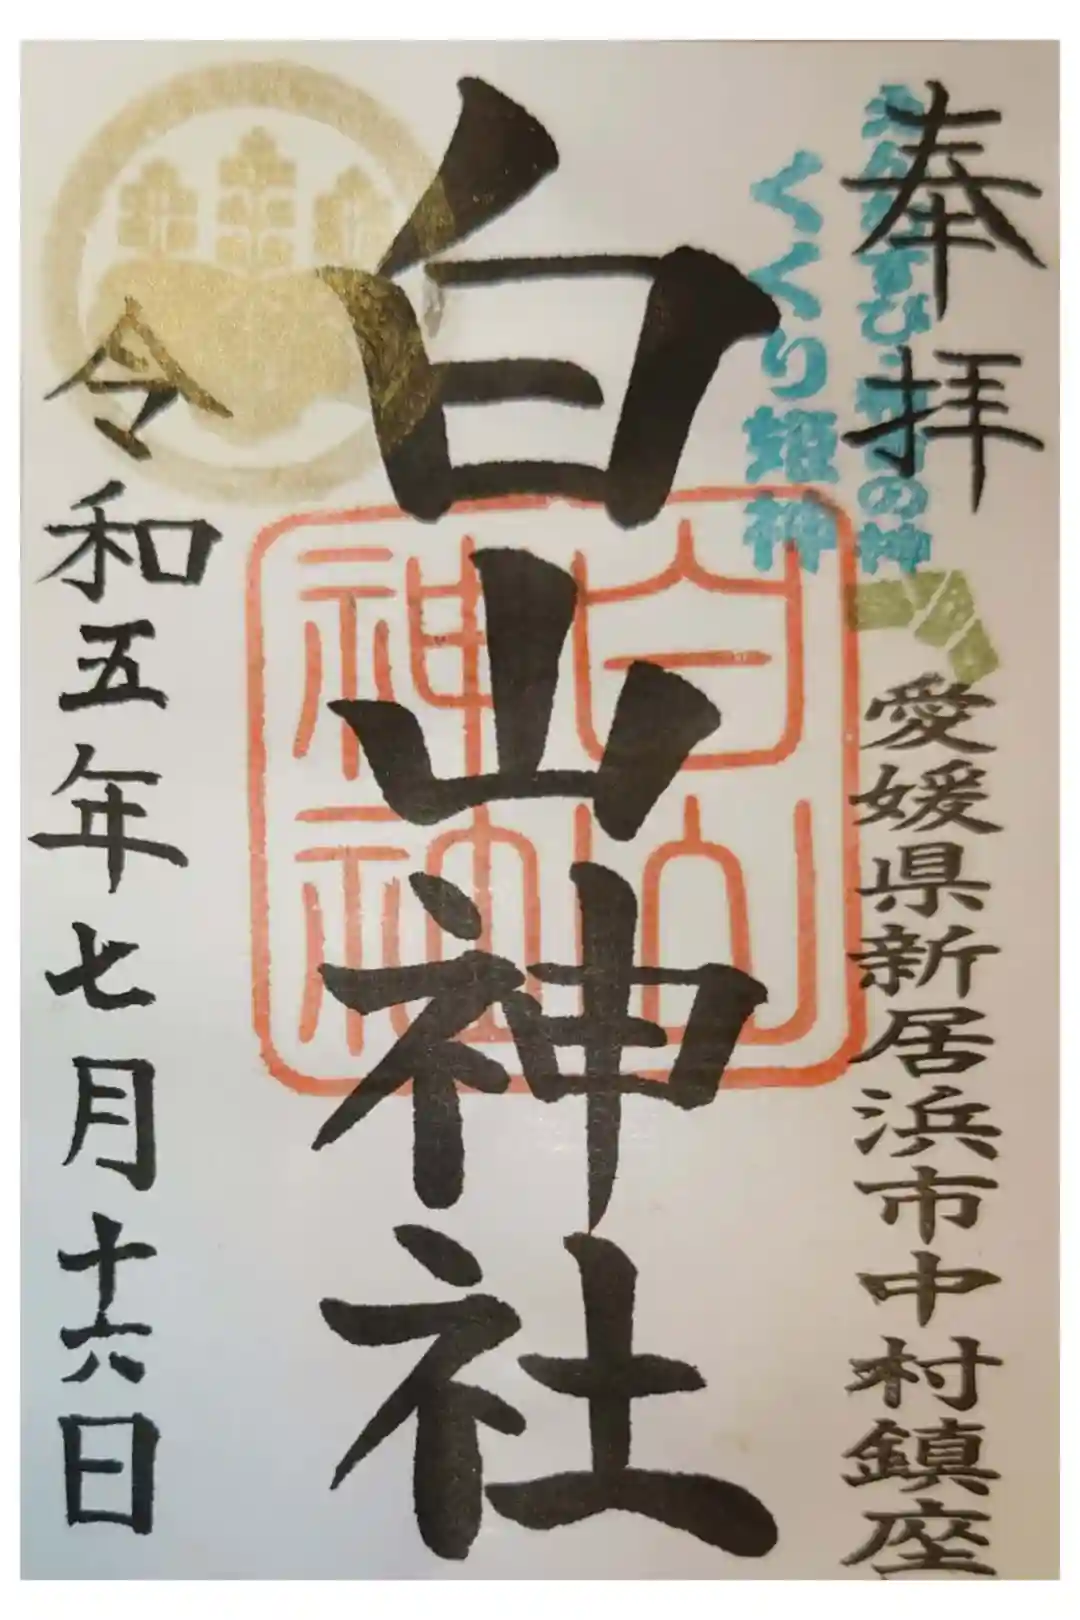 奉拝
くくり姫神
愛媛県新居浜市中村鎮座
白山神社
白山神社
令和五年七月十六日